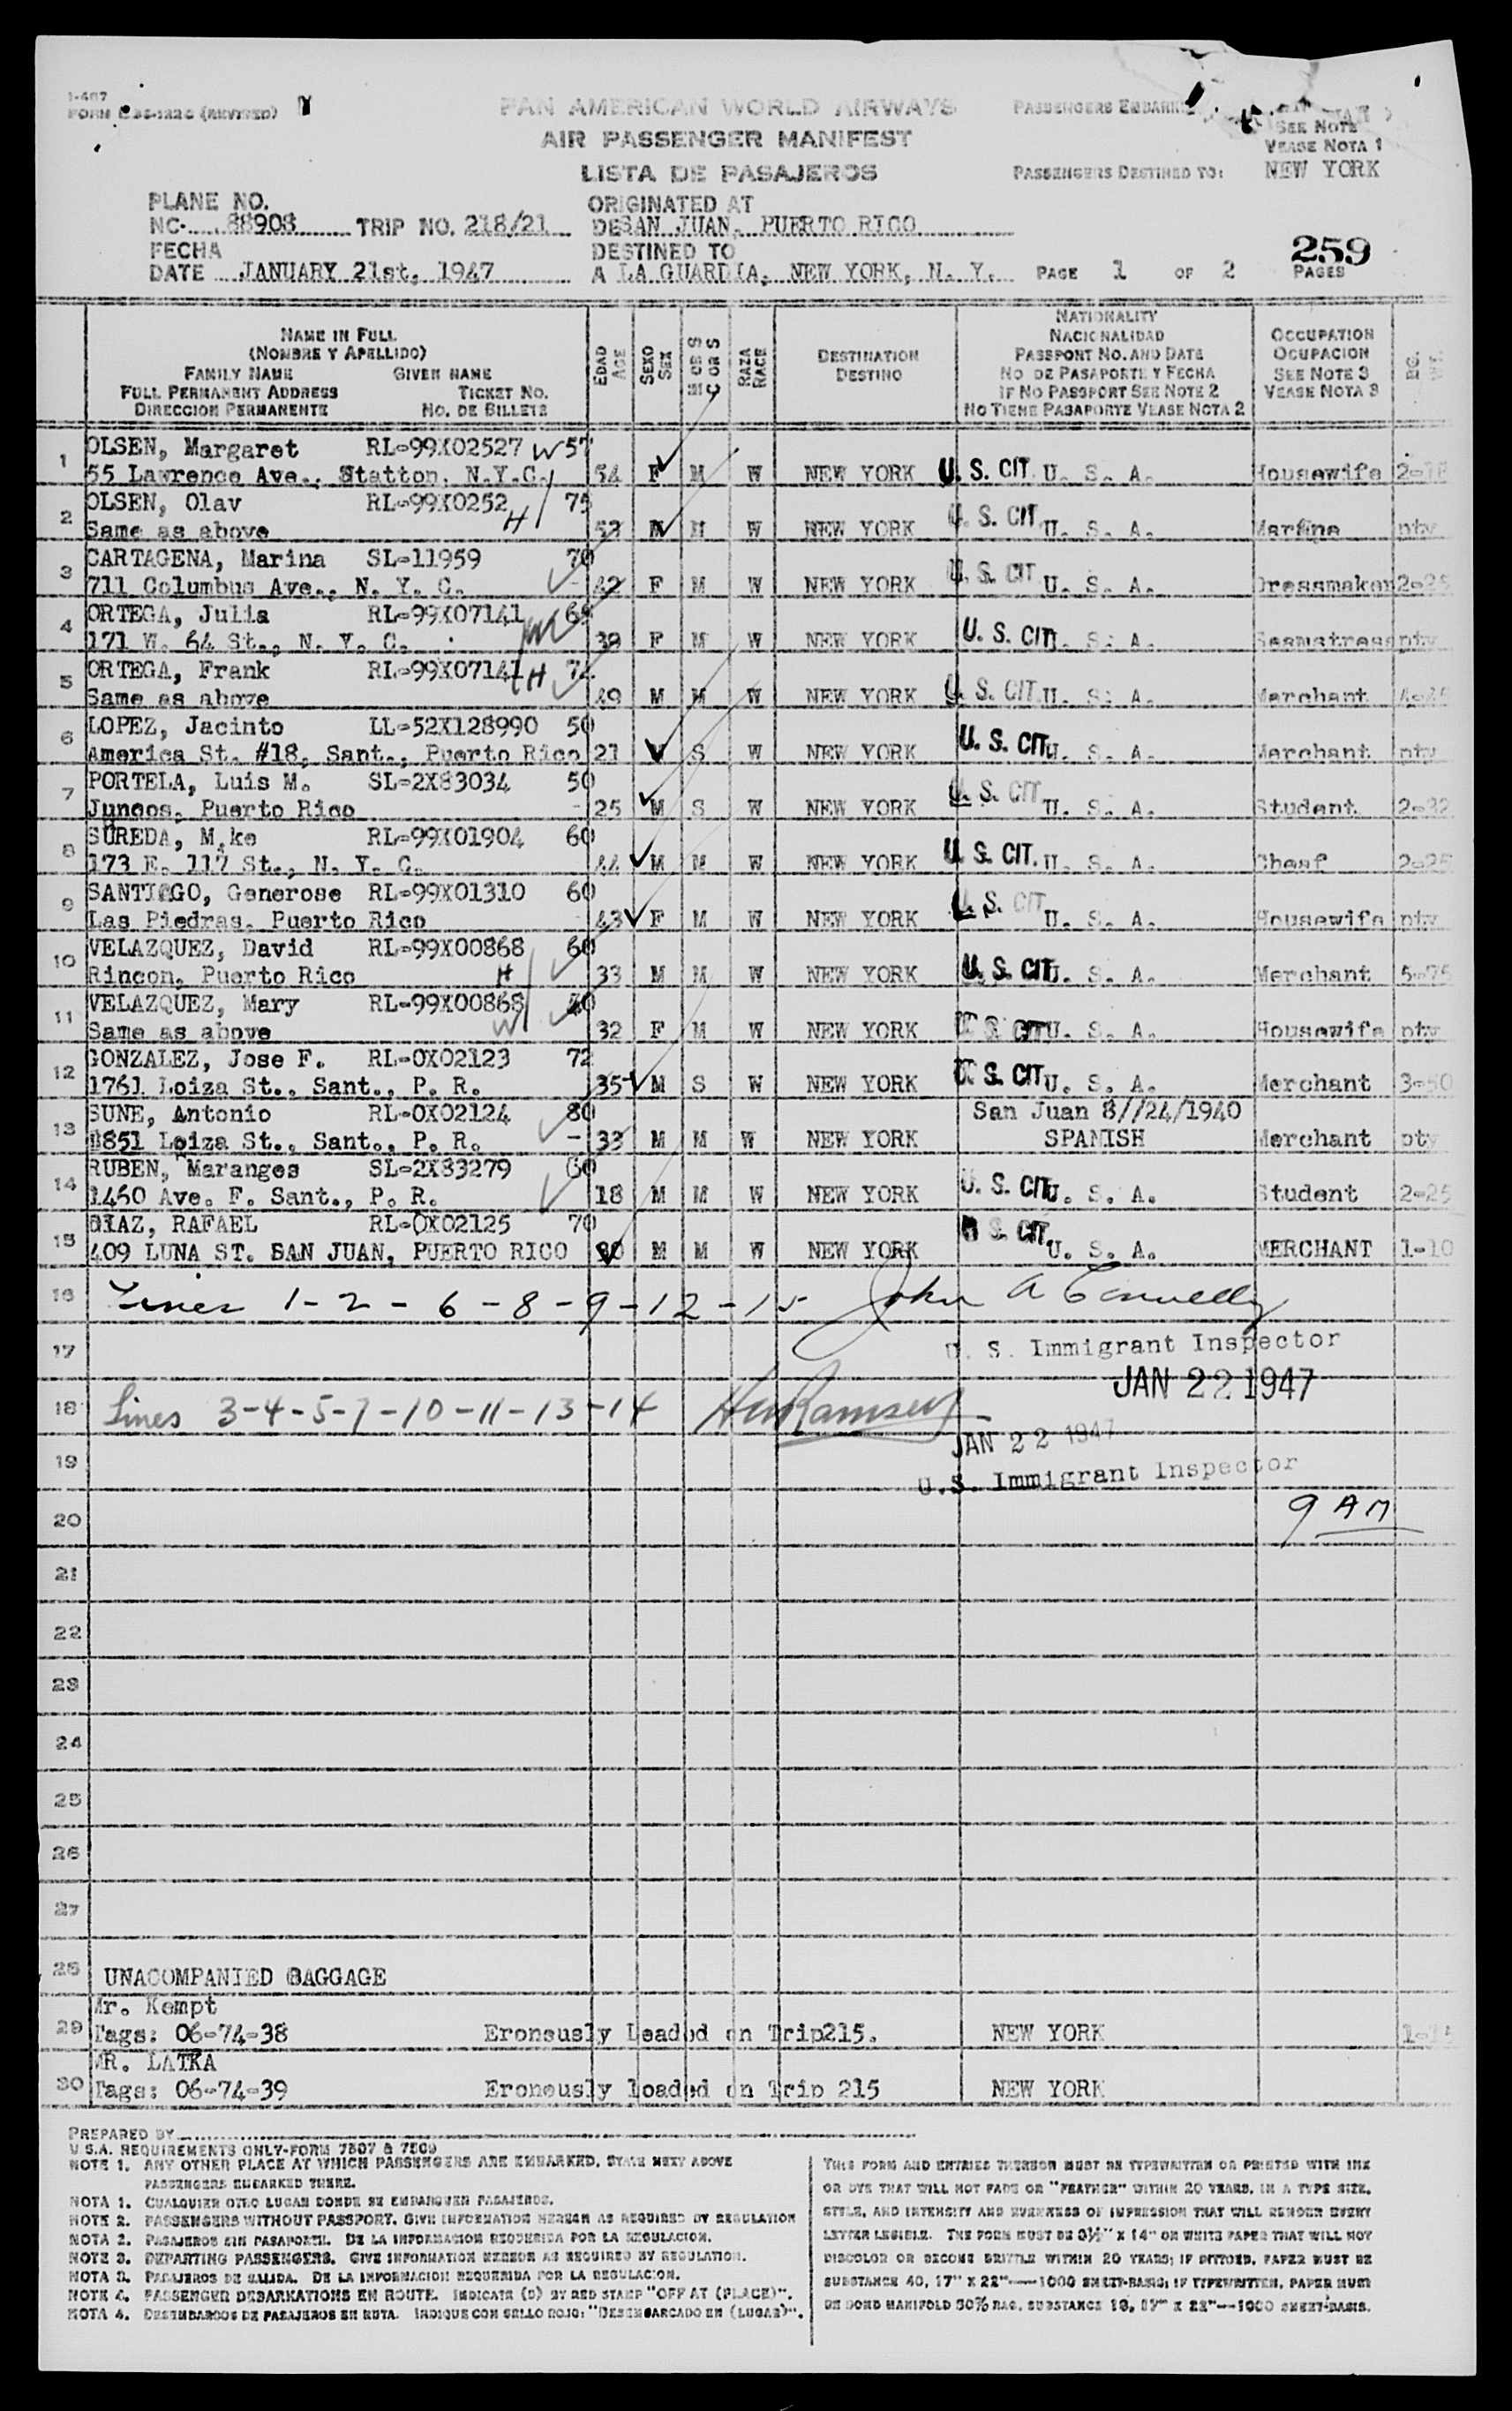 I-487
FORM (REVISED)
PAN AMERICAN WORLD AIRWAYS
AIR PASSENGER MANIFEST
LISTA DE PASAJEROS
PASSENGERS
SEE NOTE
VEASE NOTA 1
PASSENGERS DESTINED TO: NEW YORK
PLANE NO.
NC. 88908 TRIP NO. 218/21
FECHA
DATE JANUARY 21st, 1947
ORIGINATED AT
DE SAN JUAN, PUERTO RICO
DESTINED TO
A LA GUARDIA, NEW YORK, N. Y.
PAGE 1 OF 2 PAGES
259
NAME IN FULL
(NOMBRE Y APELLIDO)
FAMILY NAME GIVEN NAME
FULL PERMANENT ADDRESS TICKET NO.
DIRECCION PERMANENTE NO. DE BILLETE
EDAD AGE
SEXO SEX
M OR S C OR S
RAZA RACE
DESTINATION
DESTINO
NATIONALITY
NACIONALIDAD
PASSPORT NO. AND DATE
NO DE PASAPORTE Y FECHA
IF NO PASSPORT SEE NOTE 2
NO TIENE PASAPORTE VEASE NOTA 2
OCCUPATION
OCUPACION
SEE NOTE 3
VEASE NOTA 3
1 OLSEN, Margaret RL-99X02527 W 57
55 Lawrence Ave., Statton, N.Y.C. 54 F M W NEW YORK U. S. CIT. U. S. A. Housewife
2 OLSEN, Olav RL-99X0252 H 75
Same as above M W NEW YORK U. S. CIT. U. S. A. pty
3 CARTAGENA, Marina SL-11959 70
711 Columbus Ave., N. Y. C. 42 F M W NEW YORK U. S. CIT U. S. A. Dressmaker 2-25
4 ORTEGA, Julia RL-99X07141
171 W. 64 St., N. Y. C. 39 F M W NEW YORK U. S. CIT U. S. A. Seamstress pty
5 ORTEGA, Frank RL-99X07141 H
Same as above 49 M M W NEW YORK U. S. CIT. U. S. A. Merchant
6 LOPEZ, Jacinto LL-52X128990 50
America St. #18, Sant., Puerto Rico 21 S W NEW YORK U. S. CIT U. S. A. Merchant pty
7 PORTELA, Luis M. SL-2X83034 50
Juncos, Puerto Rico 25 M S W NEW YORK U. S. CIT U. S. A. Student
8 SUREDA, M.ke RL-99X01904 60
173 E. 117 St., N. Y. C. 44 M M W NEW YORK U. S. CIT. U. S. A. Cheaf 2-25
9 SANTIAGO, Generose RL-99X01310 60
Las Piedras, Puerto Rico 43 F M W NEW YORK U. S. CIT U. S. A. Housewife pty
10 VELAZQUEZ, David RL-99X00868 60
Rincon, Puerto Rico H 33 M M W NEW YORK U. S. CIT. U. S. A. Merchant 5-75
11 VELAZQUEZ, Mary RL-99X00868 40
Same as above W 32 F M W NEW YORK U. S. CIT U. S. A. Housewife pty
12 GONZALEZ, Jose F. RL-0X02123 72
1761 Loiza St., Sant., P. R. 35 M S W NEW YORK U. S. CIT U. S. A. Merchant 3-50
13 SUNE, Antonio RL-0X02124 80 San Juan 8//24/1940
1851 Loiza St., Sant., P. R. - 33 M M W NEW YORK SPANISH Merchant pty
14 RUBEN, Maranges SL-2X83279 60
1460 Ave. F. Sant., P. R. 18 M M W NEW YORK U. S. CIT U. S. A. Student 2-25
15 DIAZ, RAFAEL RL-0X02125 70
409 LUNA ST. SAN JUAN, PUERTO RICO M M W NEW YORK U. S. CIT. U. S. A. MERCHANT 1-10
16 Lines 1-2-6-8-9-12-15 John A Connelly
17 U. S. Immigrant Inspector
JAN 22 1947
18 Lines 3-4-5-7-10-11-13-14 Ramsey
JAN 22 1947
19 U.S. Immigrant Inspector
20 9 AM
21
22
23
24
25
26
27
28 UNACOMPANIED BAGGAGE
Mr. Kempt
29 Tags: 06-74-38 Eronously Loaded on Trip215. NEW YORK
MR. LATKA
30 Tags: 06-74-39 Eronously loaded on Trip 215 NEW YORK
PREPARED BY
U.S.A. REQUIREMENTS ONLY-FORM 7507 & 7509
NOTE 1. ANY OTHER PLACE AT WHICH PASSENGERS ARE EMBARKED, STATE NEXT ABOVE
PASSENGERS EMBARKED THERE.
NOTA 1. CUALQUIER OTRO LUGAR DONDE SE EMBARQUEN PASAJEROS.
NOTE 2. PASSENGERS WITHOUT PASSPORT. GIVE INFORMATION HEREON AS REQUIRED BY REGULATION
NOTA 2. PASAJEROS SIN PASAPORTE. DE LA INFORMACION REQUERIDA POR LA REGULACION.
NOTE 3. DEPARTING PASSENGERS. GIVE INFORMATION HEREON AS REQUIRED BY REGULATION.
NOTA 3. PASAJEROS DE SALIDA. DE LA INFORMACION REQUERIDA POR LA REGULACION.
NOTE 4. PASSENGER DEBARKATIONS EN ROUTE. INDICATE (D) BY RED STAMP "OFF AT (PLACE)".
NOTA 4. DESEMBARCOS DE PASAJEROS EN RUTA. INDIQUE CON SELLO ROJO: "DESEMBARCADO EN (LUGAR)".
THIS FORM AND ENTRIES THEREON MUST BE TYPEWRITTEN OR PRINTED WITH INK
OR DYE THAT WILL NOT FADE OR "FEATHER" WITHIN 20 YEARS, IN A TYPE SIZE,
STYLE, AND INTENSITY AND EVENNESS OF IMPRESSION THAT WILL RENDER EVERY
LETTER LEGIBLE. THE FORM MUST BE 8½" X 14" ON WHITE PAPER THAT WILL NOT
DISCOLOR OR BECOME BRITTLE WITHIN 20 YEARS; IF DITTOED, PAPER MUST BE
SUBSTANCE 40, 17" X 22"—1000 SHEET-BASIS; IF TYPEWRITTEN, PAPER MUST
BE BOND MANIFOLD 50% RAG, SUBSTANCE 18, 17" X 22"—1000 SHEET-BASIS.